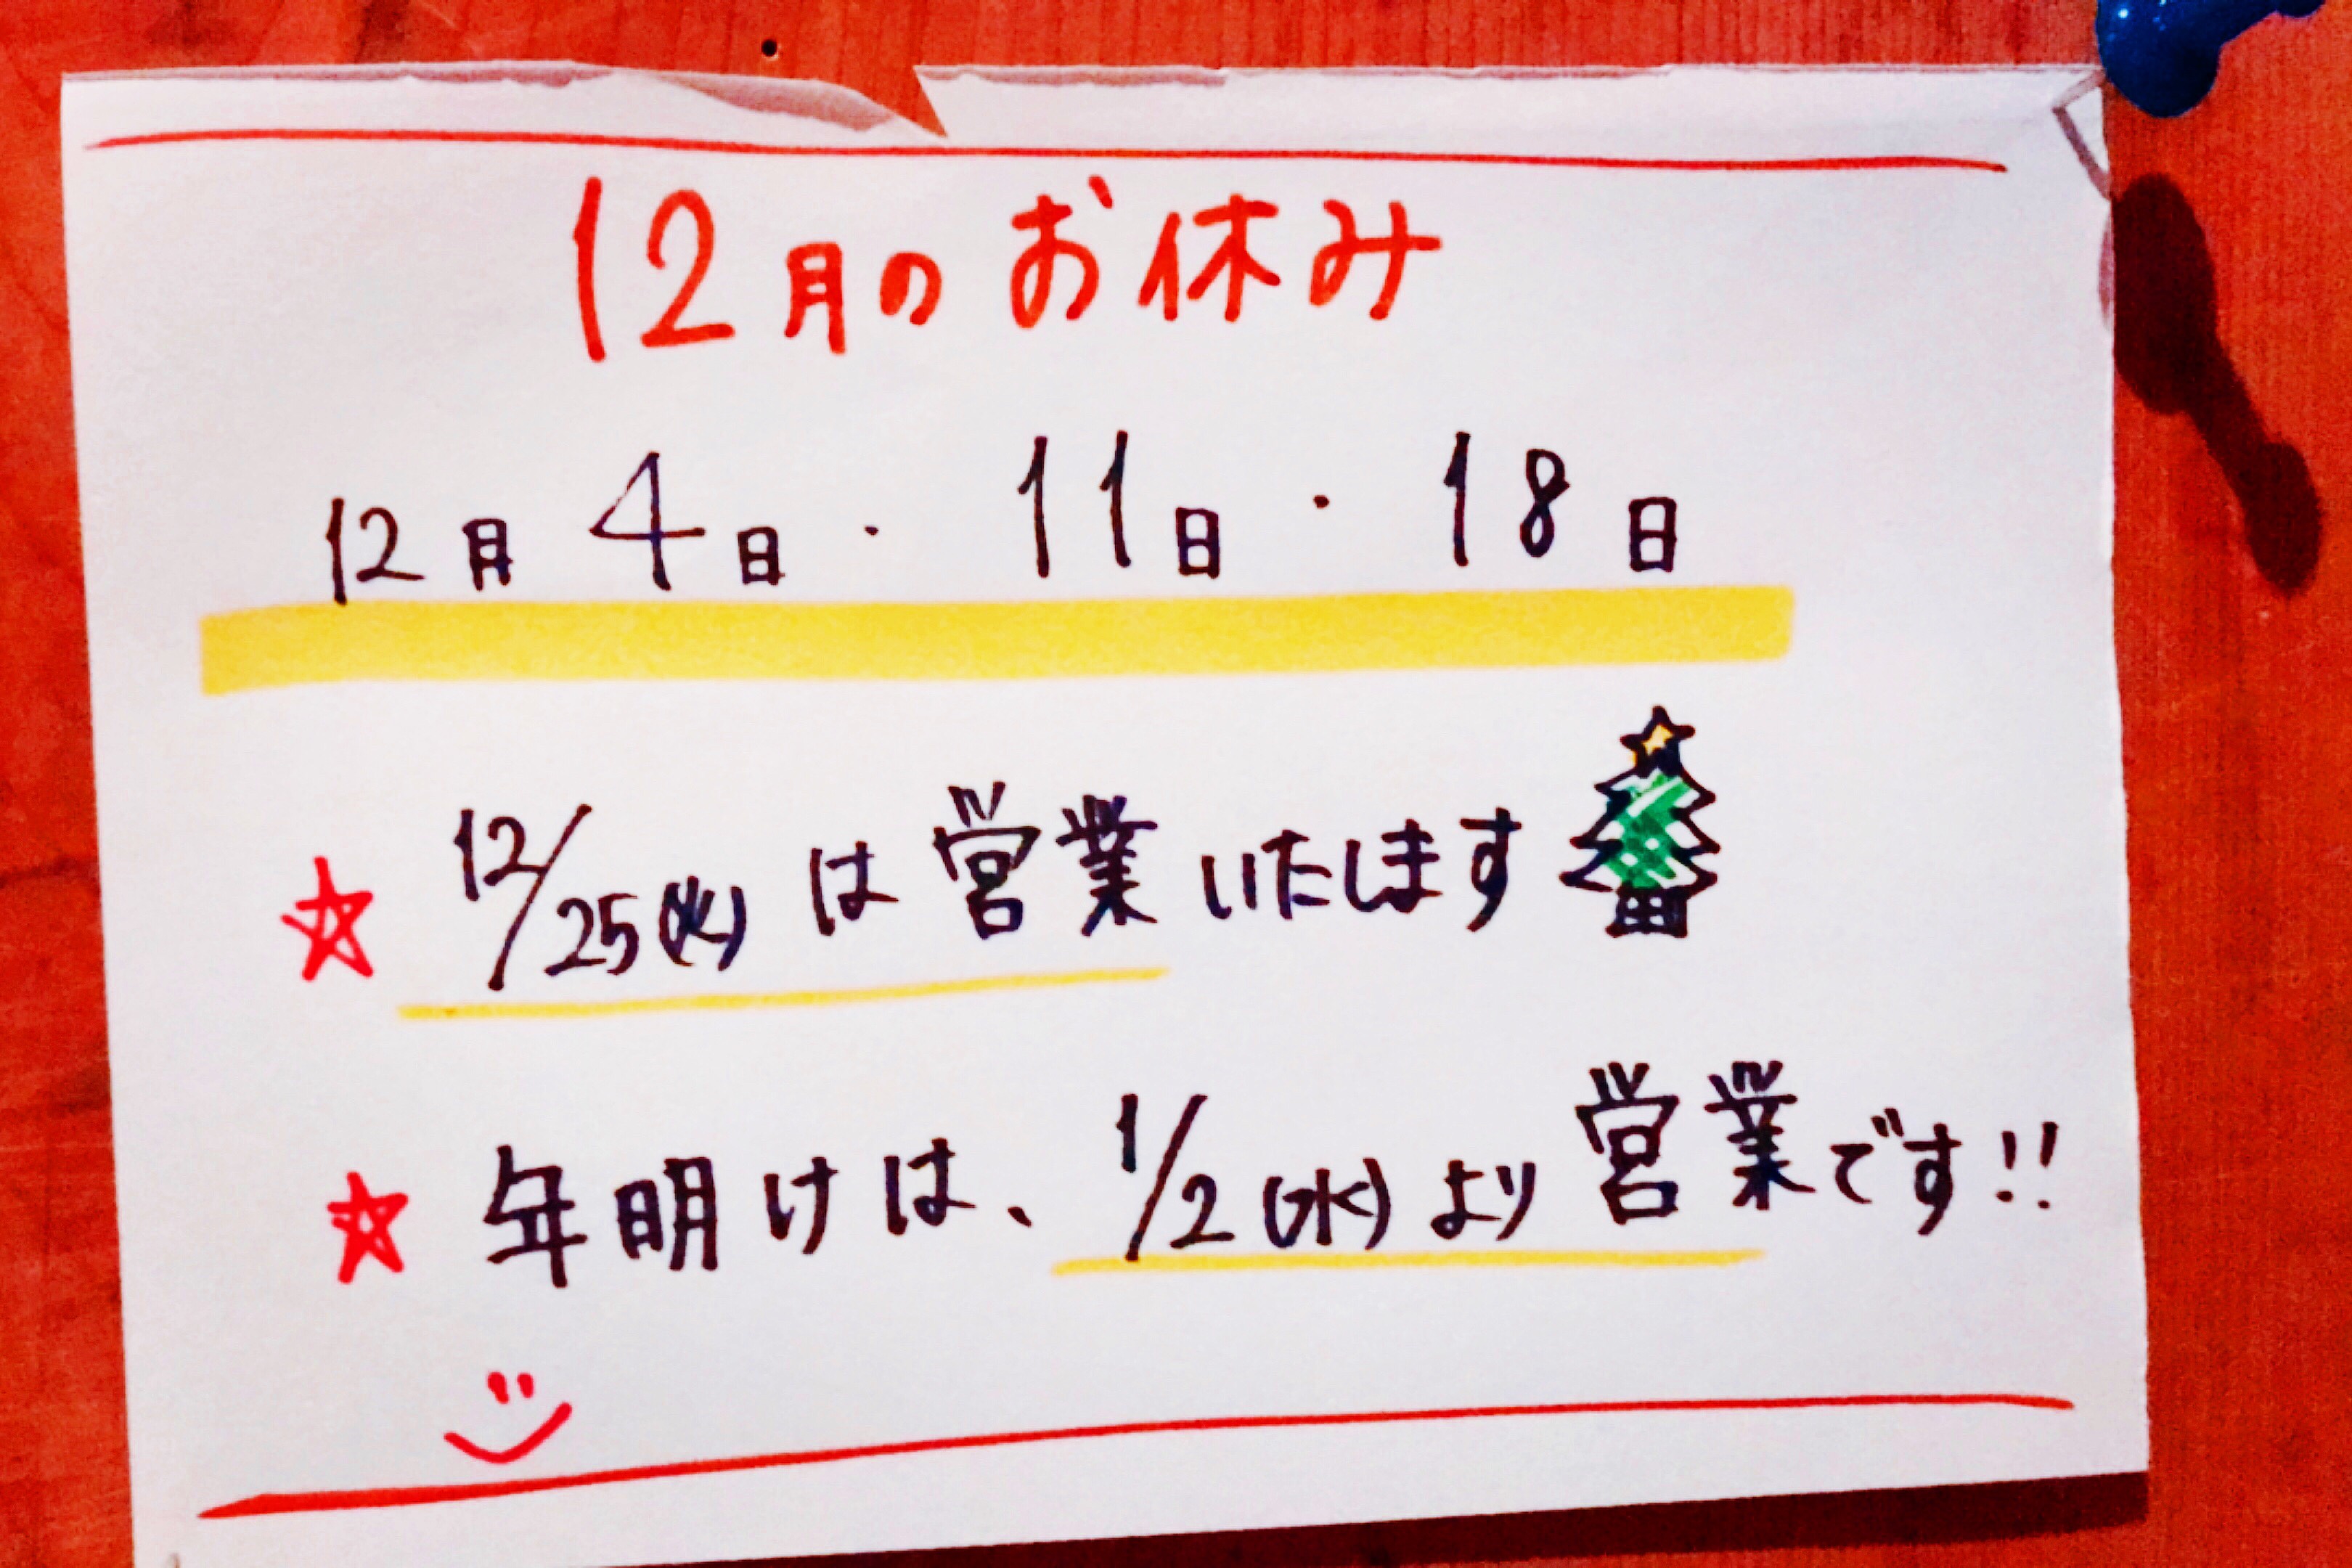 12月のお休み
12月 4日・11日・18日
☆ 12/25(火)は営業いたします
☆ 年明けは、1/2(水)より営業です!!